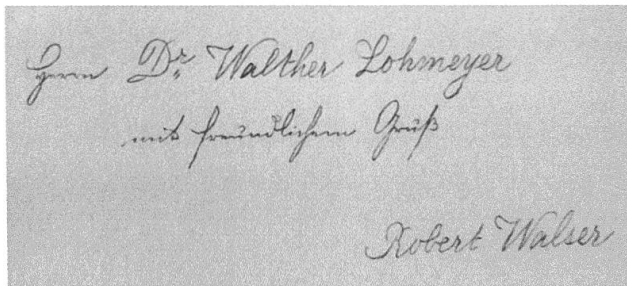 Herrn Dr. Walther Lohmeyer
mit freundlichem Gruß
Robert Walser